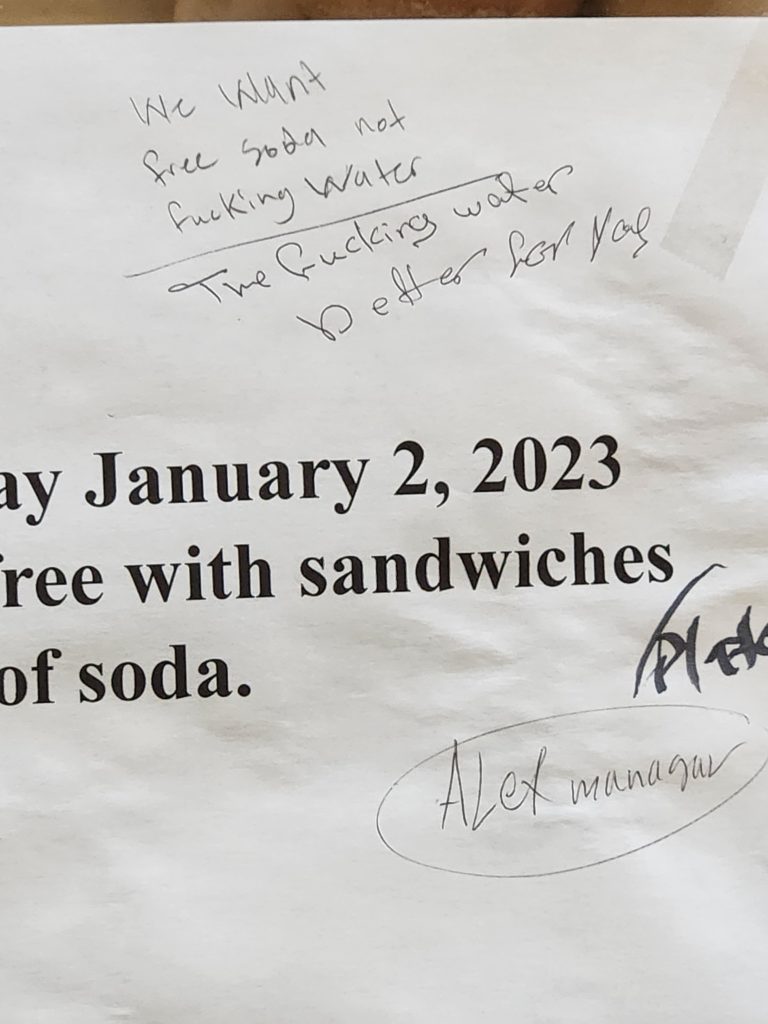 We Want
free soda not
fucking Water
The fucking water
better for you
ay January 2, 2023
ree with sandwiches
of soda.
ALex managar